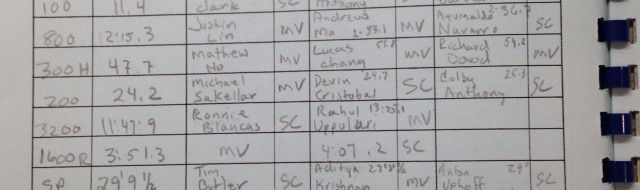 100 11.4 Clark SC Anthony
800 2:15.3 Justin Lin MV Andrew Ma 2:53.1 MV Navarro SC
300H 47.7 Mathew Ho MV Lucas Chang MV Richard Dowd 54.2 MV
200 24.2 Michael Sakellar MV Devin Cristobal 24.7 SC Colby Anthony 25.3 SC
3200 11:47.9 Ronnie Blancas SC Rahul Uppuluri MV
1600R 3:51.3 MV 4:07.2 SC
SP 29'9½ Tim Butler SC Aditya Krishnan MV SC